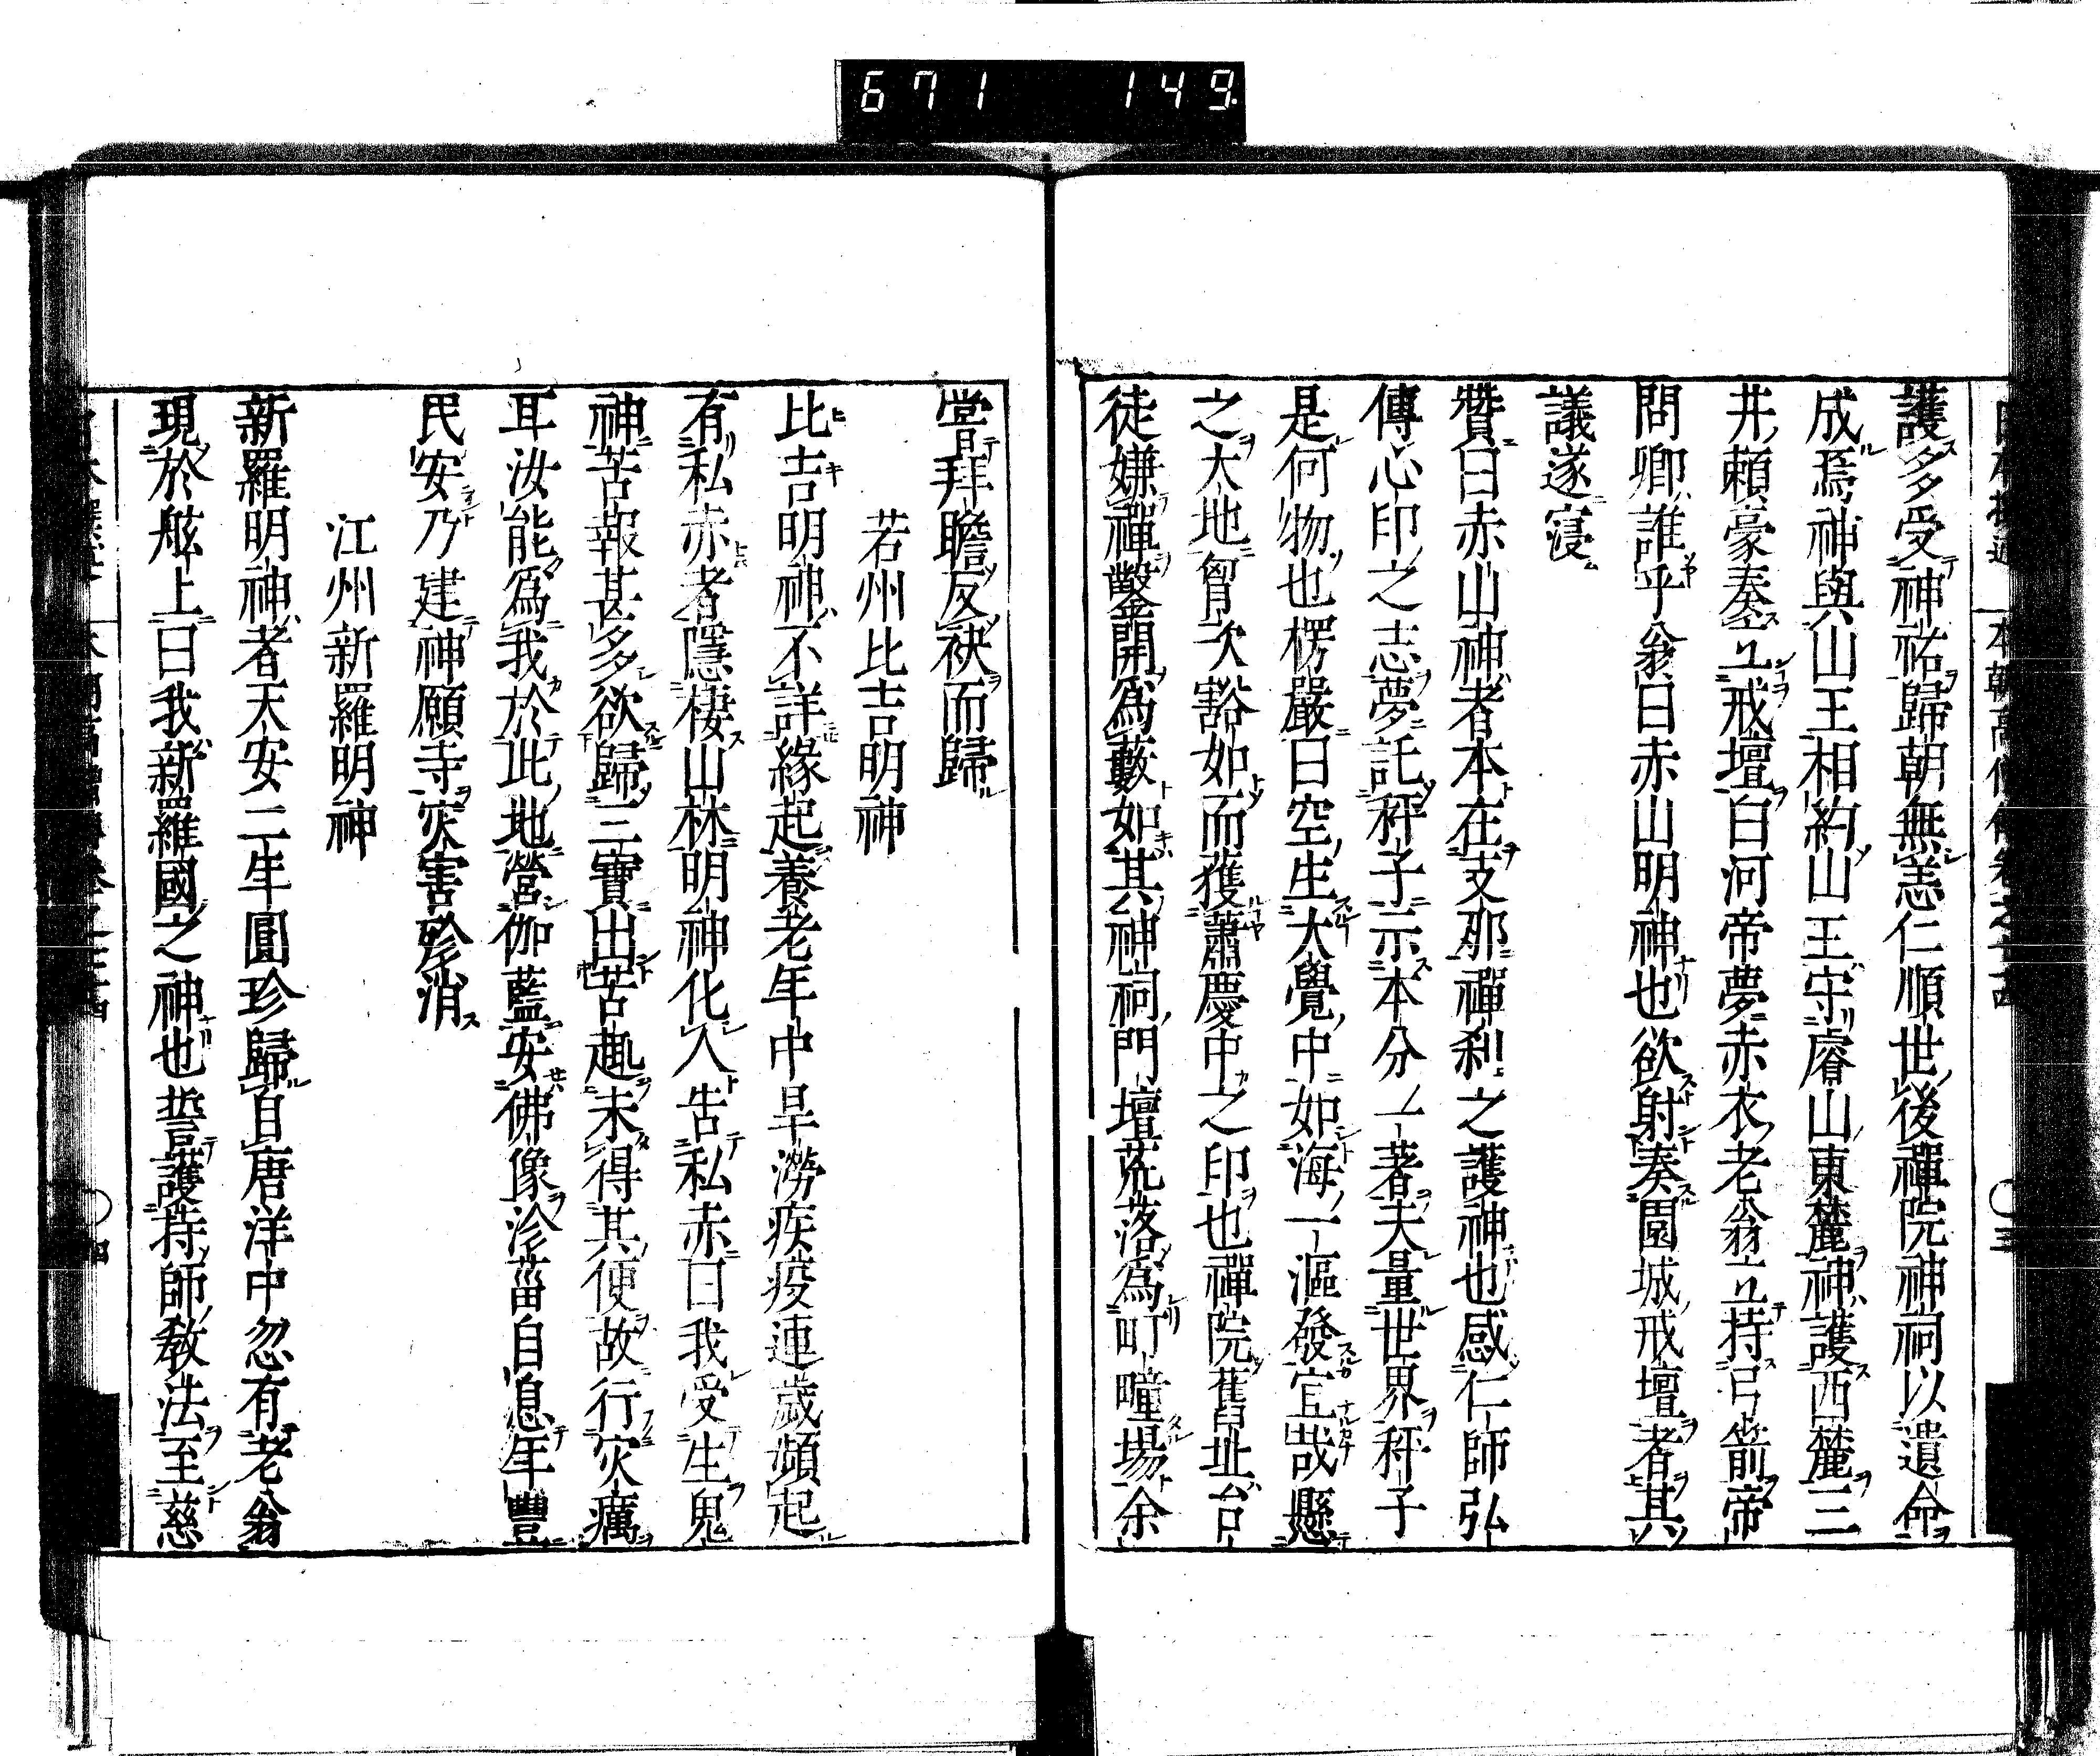 671 149
護多受神祐歸朝無恙仁順世後禪院神祠以遺命
成焉神與山王相約山王守睿山東麓神護西麓三
井頼豪奏立戒壇白河帝夢赤衣老翁立持弓箭帝
問卿誰乎翁曰赤山明神也欲射奏園城戒壇者其
議遂寢
贊曰赤山神者本在支那禪刹之護神也感仁師弘
傳心印之志夢託秤子示本分一著夫量世界秤子
是何物也楞嚴曰空生大覺中如海一漚發宜哉懸
之大地胷次豁如而獲蕭慶中之印也禪院舊址台
徒嫌禪鑿開爲藪如其神祠門壇荒落爲町畽場余
嘗拜瞻反袂而歸
若州比吉明神
比吉明神不詳緣起養老年中旱澇疾疫連歲頻起
有私赤者隱棲山林明神化人告私赤曰我受生鬼
神苦報甚多欲歸三寶出苦趣未得其便故行灾癘
耳汝能爲我於此地營伽藍安佛像沴菑自息年豐
民安乃建神願寺灾害殄消
江州新羅明神
新羅明神者天安二年圓珍歸自唐洋中忽有老翁
現於舷上曰我新羅國之神也誓護持師敎法至慈